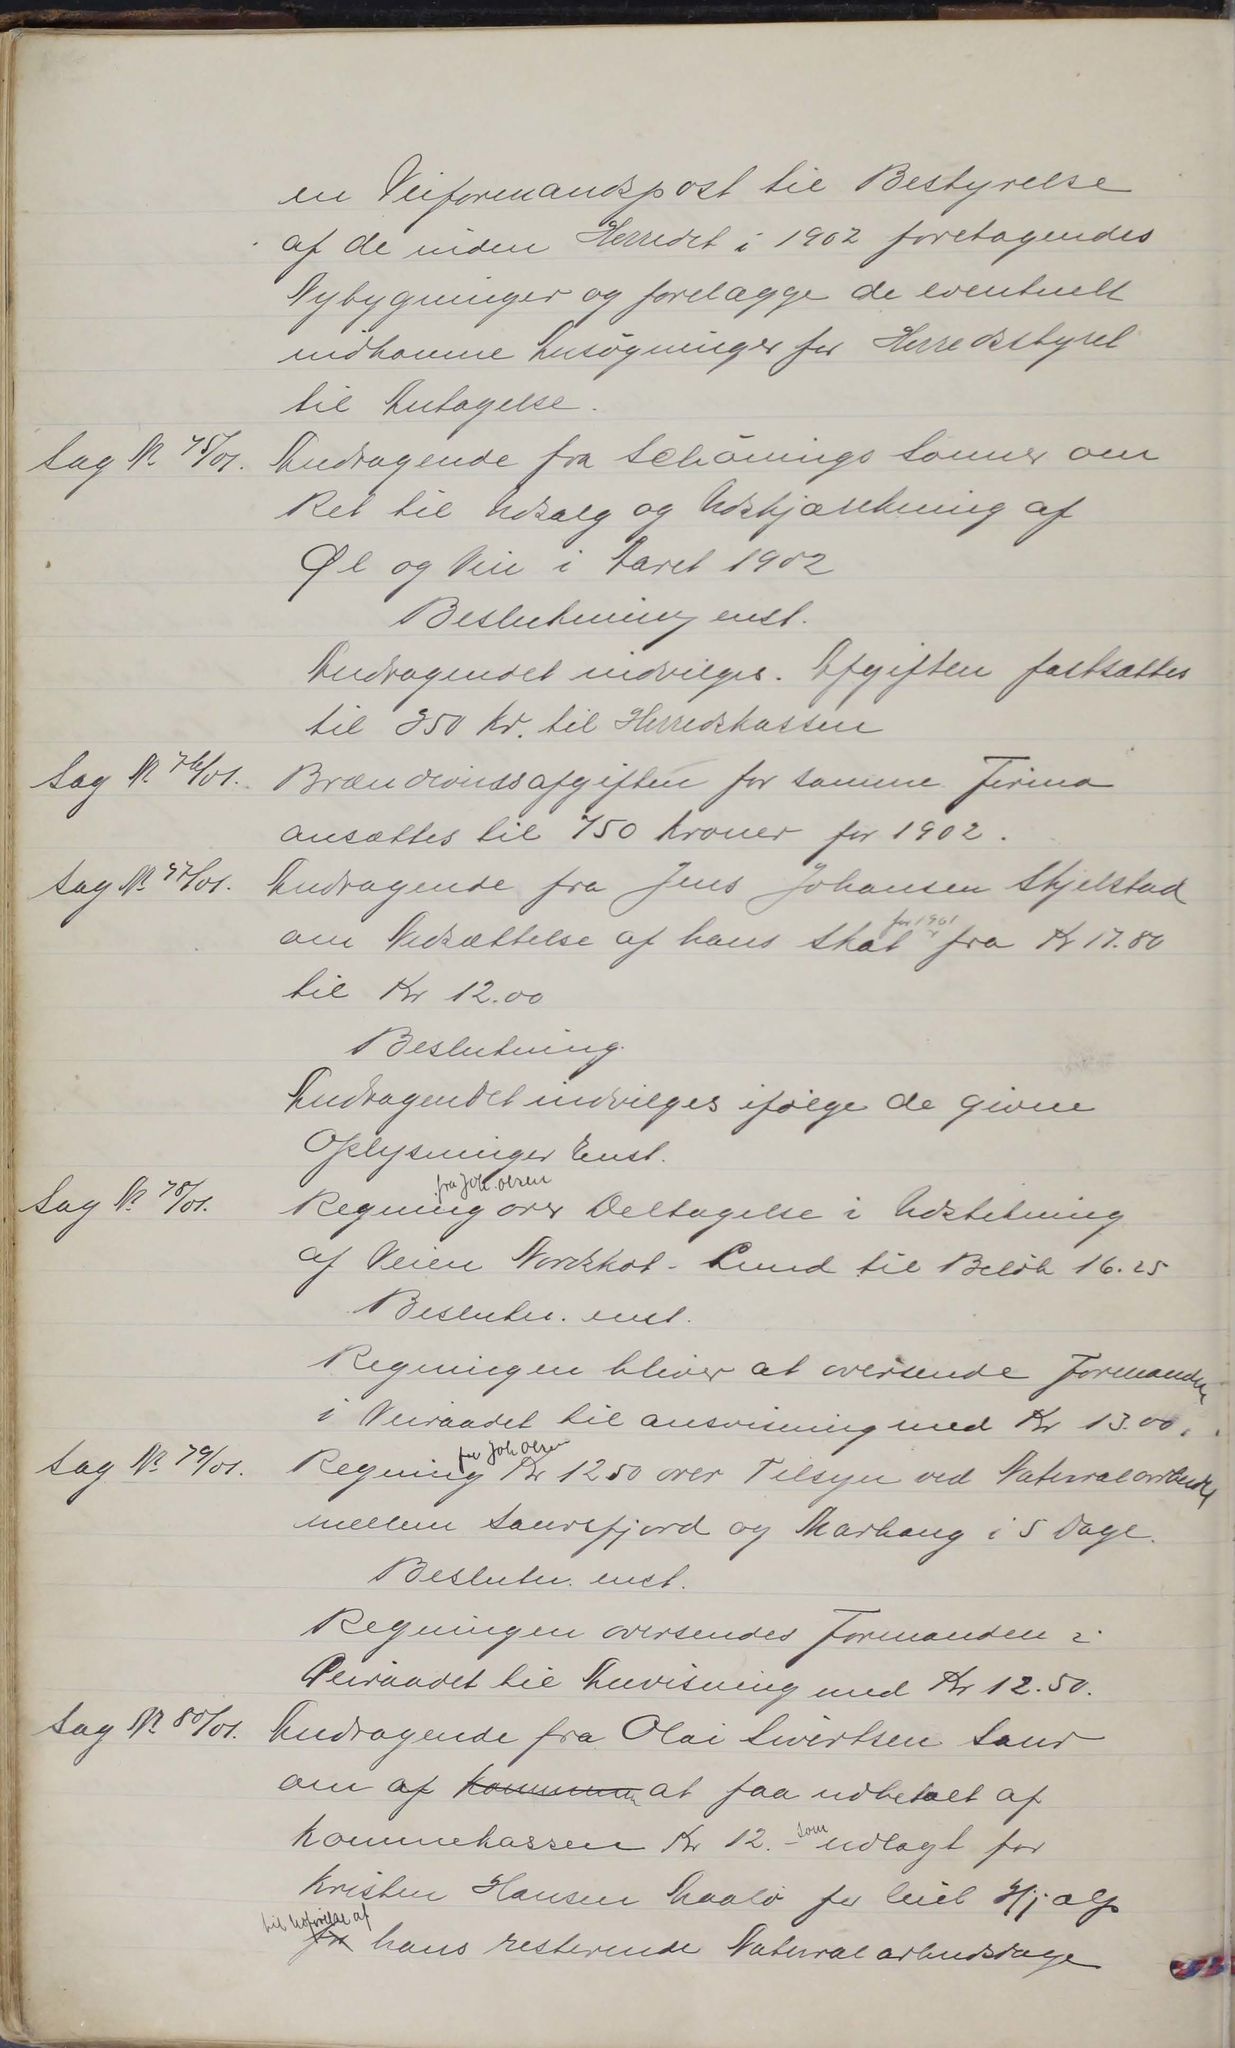 en Veiformandspost til Bestyrelse
af de inden Herredet i 1902 foretagendes
Nybygninger og forelægge de eventuelt
indkomne Ansøgninger for Herredsstyret
til Antagelse.
Sag N. 75/01. Andragende fra Schönings Sønner om
Ret til Udsalg og Udskjænkning af
Øl og Vin i Aaret 1902
Beslutning enst.
Andragendet indvilges. Afgiften fastsættes
til 350 Kr. til Herredskassen
Sag N. 76/01. Brændevinsafgiften for samme Firma
ansættes til 750 Kroner for 1902.
Sag N. 77/01. Andragende fra Jens Johansen Skjelstad
om Nedsættelse af hans Skat for 1901 fra Kr 17.80
til Kr 12.00
Beslutning.
Andragendet indvilges ifølge de givne
Oplysninger Enst.
Sag N. 78/01. Regning fra Joh. Olsen over Deltagelse i Udstikning
af Veien Nordskot - Lund til Beløb 16.25
Beslutn. enst.
Regningen bliver at oversende Formanden
i Veiraadet til ansvisning med Kr 13.00.
Sag N. 79/01. Regning fra Joh Olsen Kr 12 50 over Tilsyn ved Naturalarbeide
mellem Saursfjord og Markaug i 5 Dage.
Beslutn. enst.
Regningen oversendes Formanden i
Veiraadet til Anvisning med Kr 12.50.
Sag N. 80/01. Andragende fra Olai Sivertsen Saur
om af Kommunen at faa udbetalt af
Kommekassen Kr 12. - som udlagt for
Kristen Hansen Maalø for leiet Hjælp
til Udførelse af for hans resterende Naturalarbeidsdage